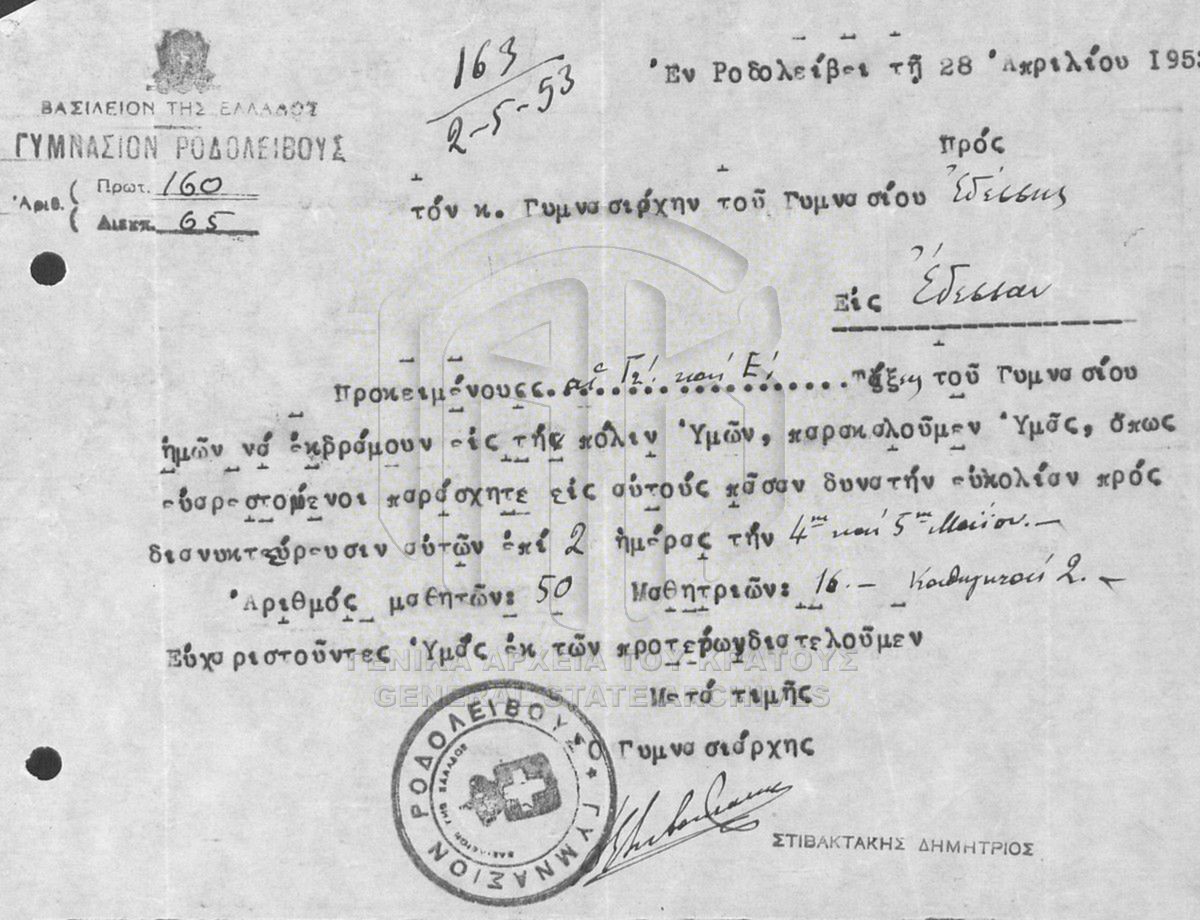 ΒΑΣΙΛΕΙΟΝ ΤΗΣ ΕΛΛΑΔΟΣ
ΓΥΜΝΑΣΙΟΝ ΡΟΔΟΛΕΙΒΟΥΣ
Ἀριθ. ( Πρωτ. 160
( Διεκπ. 65
163
2-5-53
Ἐν Ροδολείβει τῇ 28 Ἀπριλίου 195
Πρός
τόν κ. Γυμνασιάρχην τοῦ Γυμνασίου Ἐδέσσης
Εἰς Ἔδεσσαν
Προκειμένους αἱ καί Ε! τάξεις τοῦ Γυμνασίου
ἡμῶν νά ἐκδράμουν εἰς τής πόλιν Ὑμῶν, παρακαλοῦμεν Ὑμᾶς, ὅπως
εὐαρεστούμενοι παράσχητε εἰς αὐτούς πᾶσαν δυνατήν εὐκολίαν πρός
διανυκτέρευσιν αὐτῶν ἐπί 2 ἡμέρας τήν 4ην καί 5ην Μαΐου.-
Ἀριθμός μαθητῶν: 50 Μαθητριῶν: 16.- Καθηγηταί 2.-
Εὐχαριστοῦντες Ὑμᾶς ἐκ τῶν προτέρωνδιατελοῦμεν
Μετά τιμῆς
Ὁ Γυμνασιάρχης
ΣΤΙΒΑΚΤΑΚΗΣ ΔΗΜΗΤΡΙΟΣ
ΓΥΜΝΑΣΙΟΝ ΡΟΔΟΛΕΙΒΟΥΣ
ΒΑΣΙΛΕΙΟΝ ΤΗΣ ΕΛΛΑΔΟΣ
ΓΕΝΙΚΑ ΑΡΧΕΙΑ ΤΟΥ ΚΡΑΤΟΥΣ
GENERAL STATE ARCHIVES